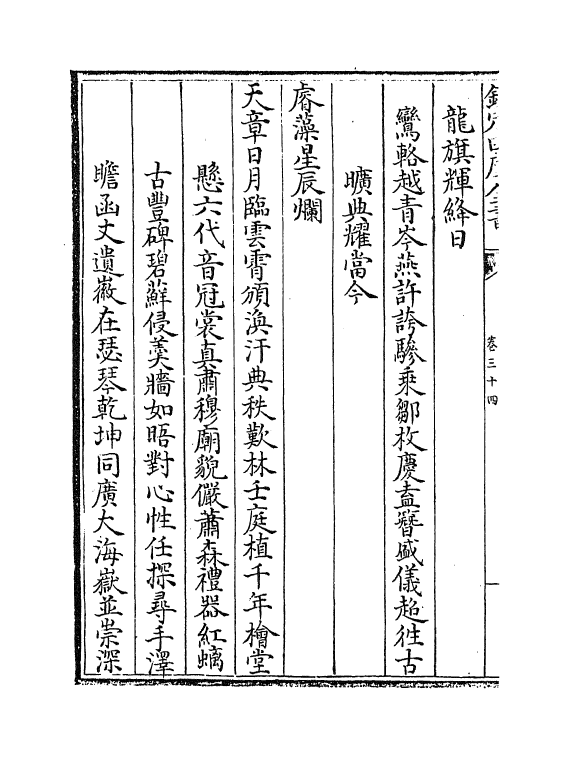 欽定四庫全書
卷三十四
龍旗輝絳日
鸞輅越青岑燕許誇驂乗鄒枚慶盍簪盛儀超徃古
曠典耀當今
睿藻星辰爛
天章日月臨雲霄頒渙汗典秩歎林壬庭植千年檜堂
懸六代音冠裳真肅穆廟貌儼蕭森禮器紅螭
古豐碑碧蘚侵羮牆如晤對心性任探尋手澤
瞻函丈遺徽在瑟琴乾坤同廣大海嶽並崇深